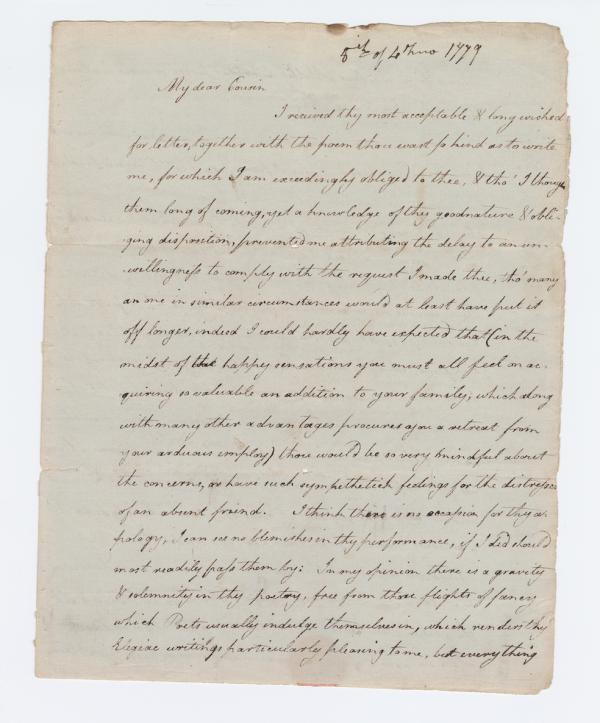 8th of 4th mo 1779
My dear Cousin
I received thy most acceptable & long wished
for letter, together with the poem thou wast so kind as to write
me, for which I am exceedingly obliged to thee, & tho' I thought
them long of coming, yet a knowledge of thy goodnature & obli-
ging disposition, prevented me attributing the delay to an un-
-willingness to comply with the request I made thee, tho' many
an one in similar circumstances would at least have put it
off longer, indeed I could hardly have expected that (in the
midst of happy sensations you must all feel on ac-
quiring so valuable an addition to your family; which along
with many other advantages procures you a retreat from
your arduous employ) thou would be so very mindful about
the concerns, or have such sympathetick feelings for the distresses
of an absent friend. I think there is no occasion for thy a-
pology, I can see no blemishes in thy performance, if I did should
most readily pass them by: In my opinion there is a gravity
& solemnity in thy poetry, free from those flights of fancy
which Poets usually indulge themselves in, which renders thy
Elegiac writings particularly pleasing to me, but everything